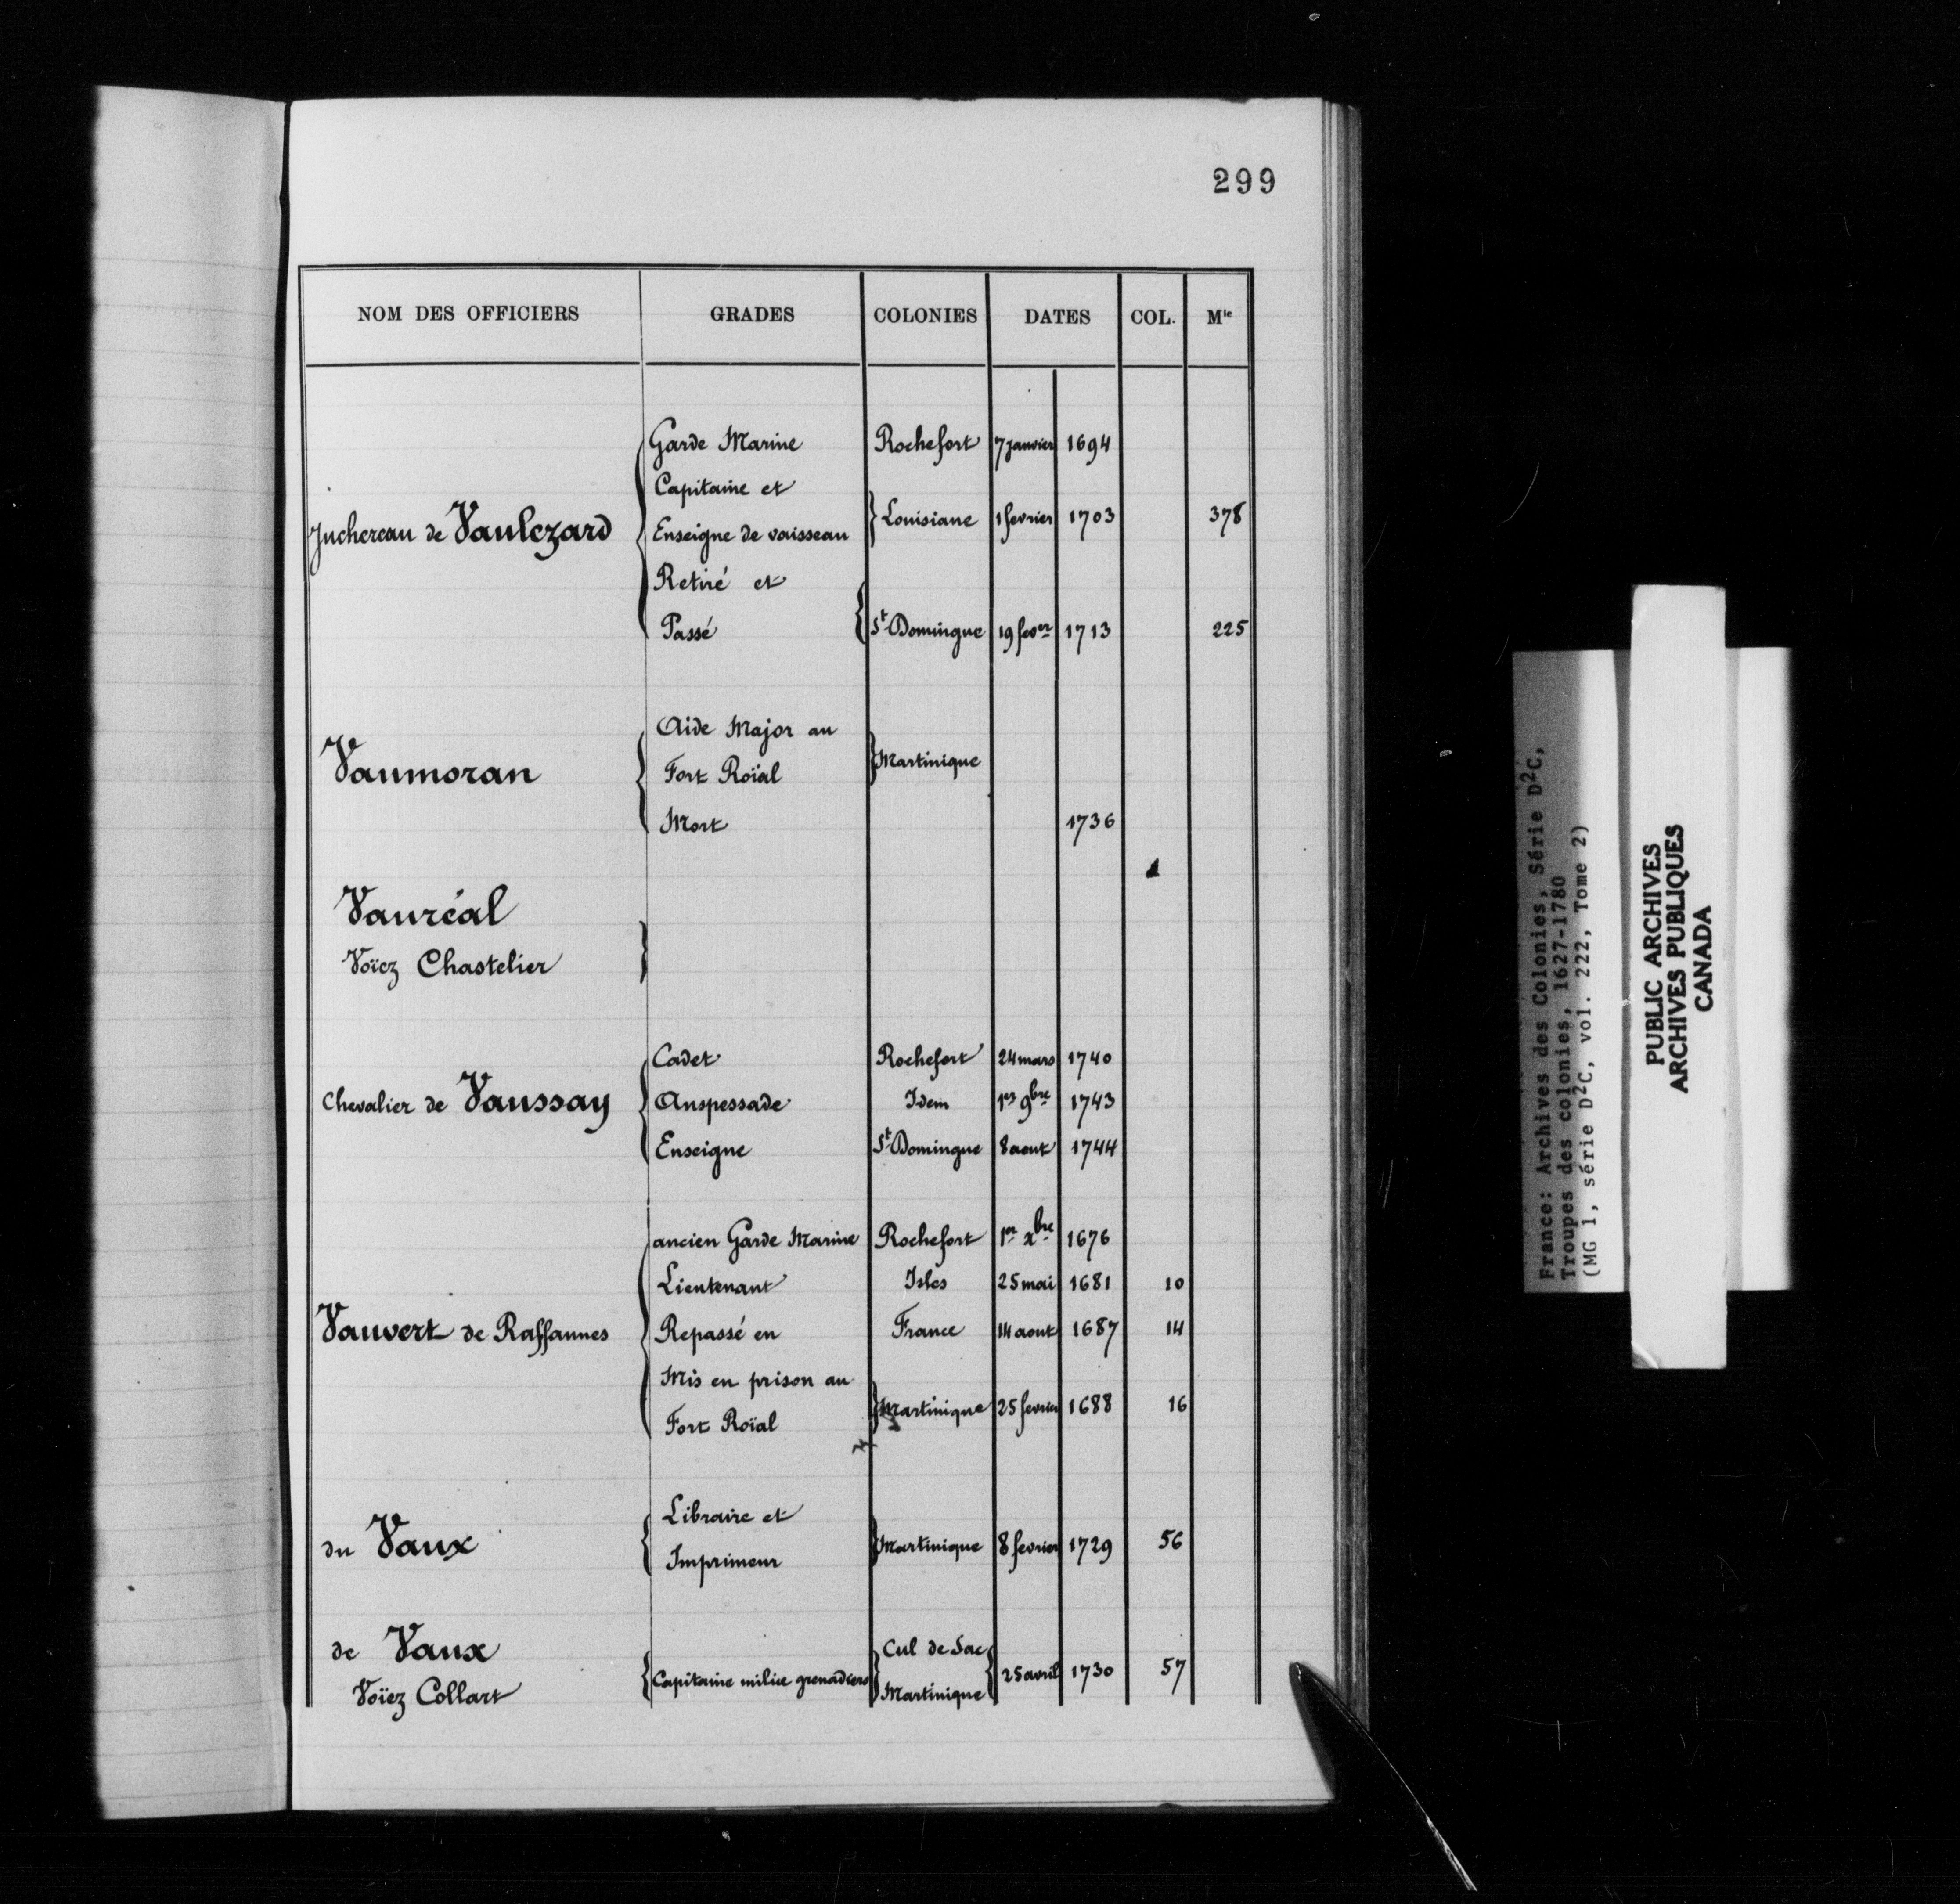 299
NOM DES OFFICIERS GRADES COLONIES DATES COL. Mle
Garde Marine Rochefort 7 janvier 1694
Capitaine et
Juchereau de Vaulezard Enseigne de vaisseau Louisiane 1 fevrier 1703 378
Retiré et
Passé St Domingue 19 fever 1713 225
Aide Major au
Vaumoran Fort Roïal Martinique
Mort 1736
Vauréal
Voïez Chastelier
Cadet Rochefort 24 mars 1740
Chevalier de Vaussay Anspessade Idem 1er 9bre 1743
Enseigne St Domingue 8 aout 1744
ancien Garde Marine Rochefort 1er xbre 1676
Lieutenant Isles 25 mai 1681 10
Vauvert de Raffannes Repassé en France 14 aout 1687 14
Mis en prison au
Fort Roïal Martinique 25 fevrier 1688 16
Libraire et
du Vaux Imprimeur Martinique 8 fevrier 1729 56
de Vaux Cul de Sac
Voïez Collart Capitaine milice grenadiers Martinique 25 avril 1730 57
France: Archives des Colonies, Série D2C,
Troupes des colonies, 1627-1780
(MG 1, série D2C, vol. 222, Tome 2)
PUBLIC ARCHIVES
ARCHIVES PUBLIQUES
CANADA